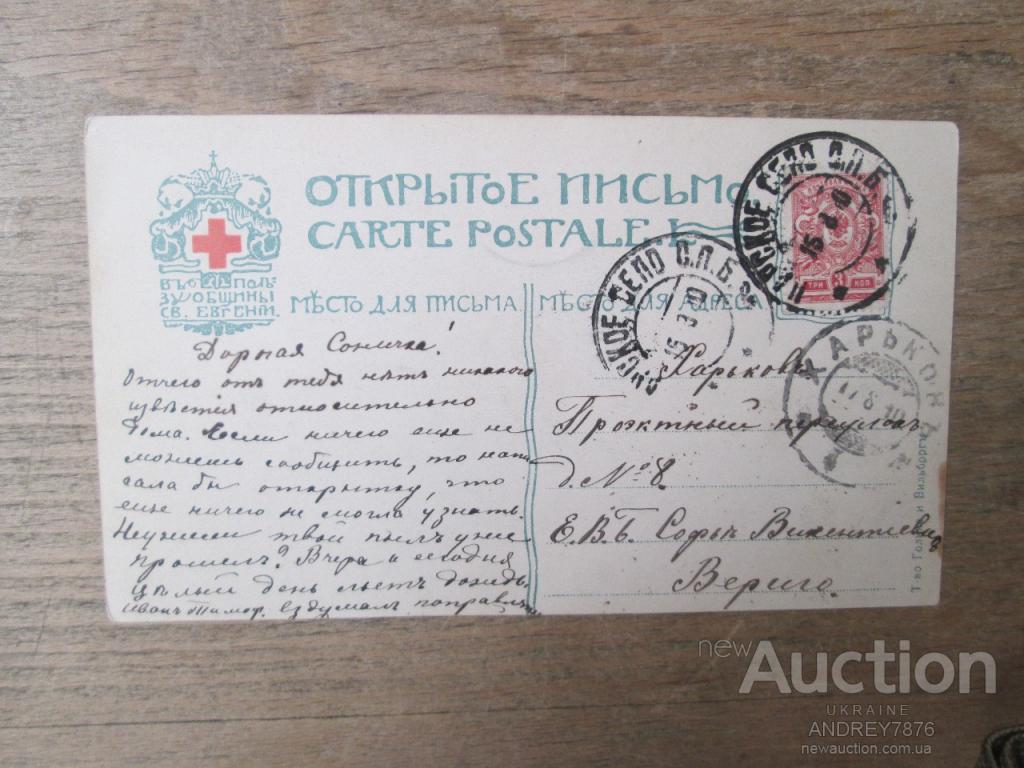 ОТКРЫТОЕ ПИСЬМО
CARTE POSTALE.
ВЪ ПОЛЬ
ЗУ ОБЩИНЫ
СВ. ЕВГЕНІИ.
МѢСТО ДЛЯ ПИСЬМА
МѢСТО ДЛЯ АДРЕСА
ЦАРСКОЕ СЕЛО С.П.Б.
ТРИ 3 КОП
СКОЕ СЕЛО С.П.Б.
ХАРЬКОВЪ
Дорогая Соничка!
Отчего отъ тебя нѣтъ никакого
извѣстія относительно
дома. Если ничего еще не
можешь сообщить, то напи
сала бы открытку, что
еще ничего не могла узнать.
Неужели твой пылъ уже
прошелъ? Вчера и сегодня
цѣлый день льетъ дождь.
Иванъ Тимоф.
Харьковъ
д. № 8.
Е.В.Б. Софьѣ Викентіевнѣ
Вериго.
Т-во Голике и Вильборгъ
new Auction
UKRAINE
ANDREY7876
newauction.com.ua